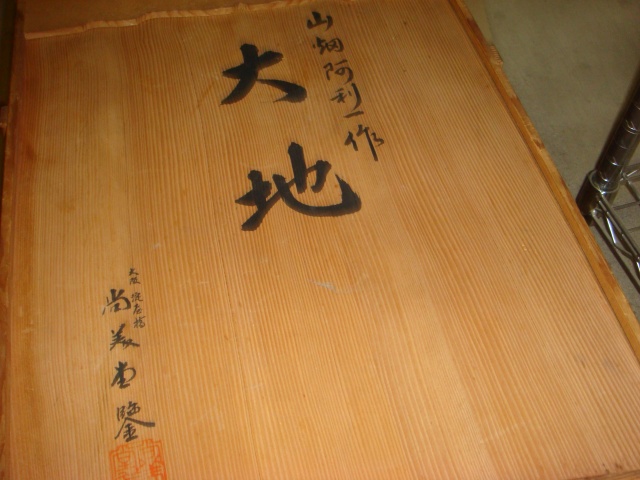 山畑阿利一作
大地
大阪 淀屋橋
尚美堂鑒